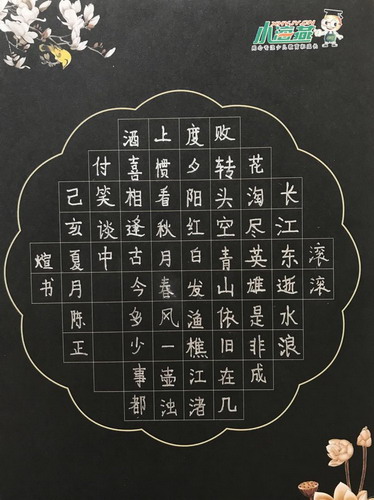 滚滚
长江东逝水浪
花淘尽英雄是非成
败转头空青山依旧在几
度夕阳红白发渔樵江渚
上惯看秋月春风一壶浊
酒喜相逢古今多少事都
付笑谈中
己亥夏月陈正
煊书